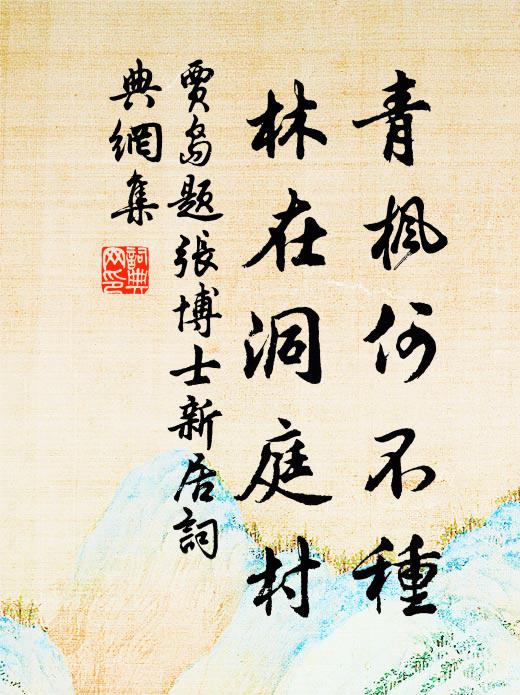 青楓何不種
林在洞庭村
賈島題張博士新居詞
典網集
詞典
网印